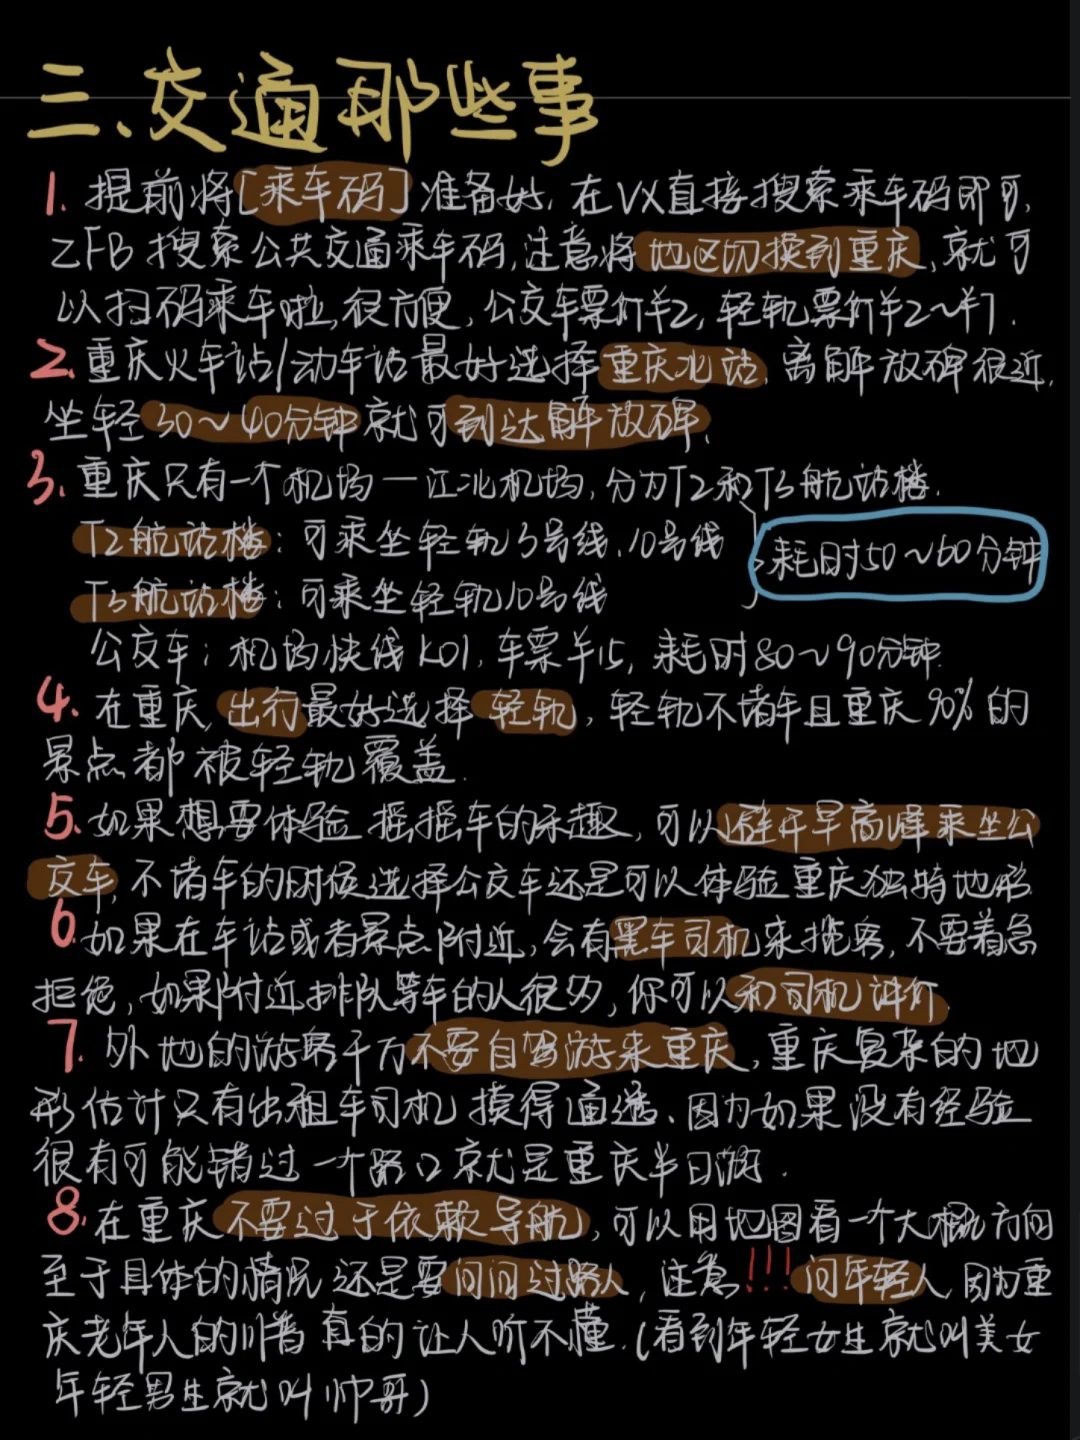 三、交通那些事
1. 提前将[乘车码]准备好,在VX直接搜索乘车码即可,
ZFB搜索公共交通乘车码,注意将地区切换到重庆,就可
以扫码乘车啦,很方便,公交车票价¥2,轻轨票价¥2~¥7.
2. 重庆火车站/动车站最好选择重庆北站,离解放碑很近,
坐轻30~40分钟就可到达解放碑,
3. 重庆只有一个机场—江北机场,分为T2和T3航站楼.
T2航站楼:可乘坐轻轨3号线、10号线
耗时50~60分钟
T3航站楼:可乘坐轻轨10号线
公交车:机场快线K01,车票¥15,耗时80~90分钟.
4. 在重庆,出行最好选择轻轨,轻轨不堵车且重庆90%的
景点都被轻轨覆盖.
5. 如果想要体验摇摇车的乐趣,可以避开早高峰乘坐公
交车,不堵车的时候选择公交车还是可以体验重庆独特地形
6. 如果在车站或者景点附近,会有黑车司机来揽客,不要着急
拒绝,如果附近排队等车的人很多,你可以和司机评价.
7. 外地的游客千万不要自驾游来重庆,重庆复杂的地
形估计只有出租车司机摸得通透、因为如果没有经验
很有可能错过一个路口就是重庆半日游.
8. 在重庆不要过于依赖导航,可以用地图看一个大概方向
至于具体的情况还是要问问过路人,注意!!!问年轻人,因为重
庆老年人的川普真的让人听不懂.(看到年轻女生就叫美女
年轻男生就叫帅哥)